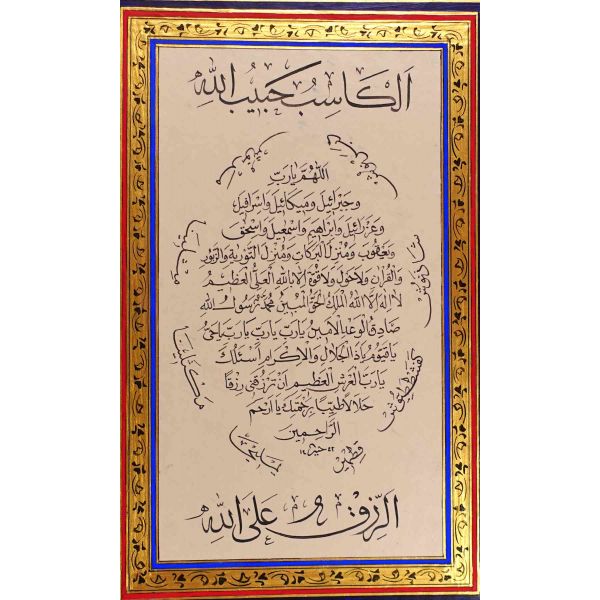 الكاسب حبيب الله
اللهم يا رب
وجبرائيل وميكائيل واسرافيل
وعزرائيل وابراهيم واسمعيل واسحق
ويعقوب ومنزل البركات ومنزل التورية والزبور
والقرآن ولا حول ولا قوة الا بالله العلي العظيم
لا اله الا الله الملك الحق المبين محمد رسول الله
صادق الوعد الامين يا رب يا رب يا رب يا حي
يا قيوم يا ذا الجلال والاكرام اسئلك
يا رب العرش العظيم ان ترزقني رزقا
حلالا طيبا برحمتك يا ارحم
الراحمين
شاذنوش
كفشططيوش
قطمير
يمليخا
مكسلينا
الرزق على الله